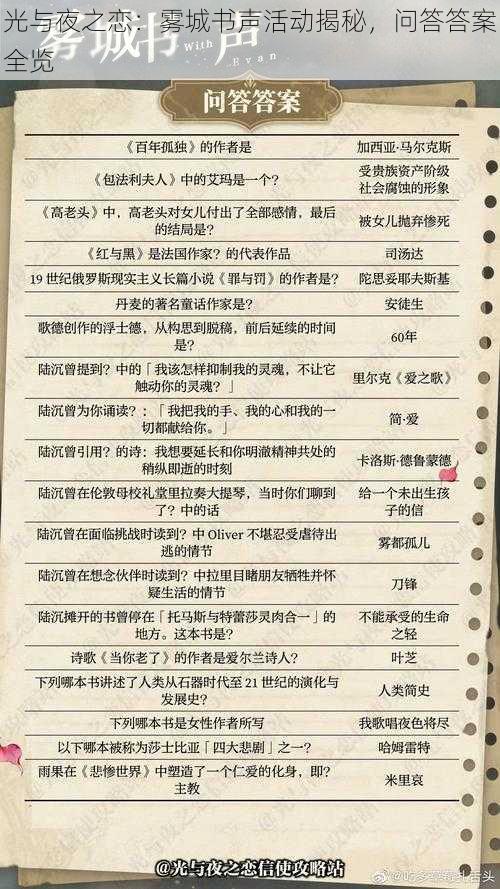 光与夜之恋：雾城书声活动揭秘，问答答案
全览
雾城书声
With
Evan
问答答案
《百年孤独》的作者是 加西亚·马尔克斯
《包法利夫人》中的艾玛是一个？ 受贵族资产阶级
社会腐蚀的形象
《高老头》中，高老头对女儿付出了全部感情，最后
的结局是？ 被女儿抛弃惨死
《红与黑》是法国作家？的代表作品 司汤达
19 世纪俄罗斯现实主义长篇小说《罪与罚》的作者是？ 陀思妥耶夫斯基
丹麦的著名童话作家是？ 安徒生
歌德创作的浮士德，从构思到脱稿，前后延续的时间
是？ 60年
陆沉曾提到？中的「我该怎样抑制我的灵魂，不让它
触动你的灵魂？」 里尔克《爱之歌》
陆沉曾为你诵读？：「我把我的手、我的心和我的一
切都献给你。」 简·爱
陆沉曾引用？的诗：我想要延长和你明澈精神共处的
稍纵即逝的时刻 卡洛斯·德鲁蒙德
陆沉曾在伦敦母校礼堂里拉奏大提琴，当时你们聊到
了？中的话 给一个未出生孩
子的信
陆沉曾在面临挑战时读到？中 Oliver 不堪忍受虐待出
逃的情节 雾都孤儿
陆沉曾在想念伙伴时读到？中拉里目睹朋友牺牲并怀
疑生活的情节 刀锋
陆沉摊开的书曾停在「托马斯与特蕾莎灵肉合一」的
地方。这本书是？ 不能承受的生命
之轻
诗歌《当你老了》的作者是爱尔兰诗人？ 叶芝
下列哪本书讲述了人类从石器时代至 21 世纪的演化与
发展史？ 人类简史
下列哪本书是女性作者所写 我歌唱夜色将尽
以下哪本被称为莎士比亚「四大悲剧」之一？ 哈姆雷特
雨果在《悲惨世界》中塑造了一个仁爱的化身，即？
主教 米里哀
@光与夜之恋信使攻略站